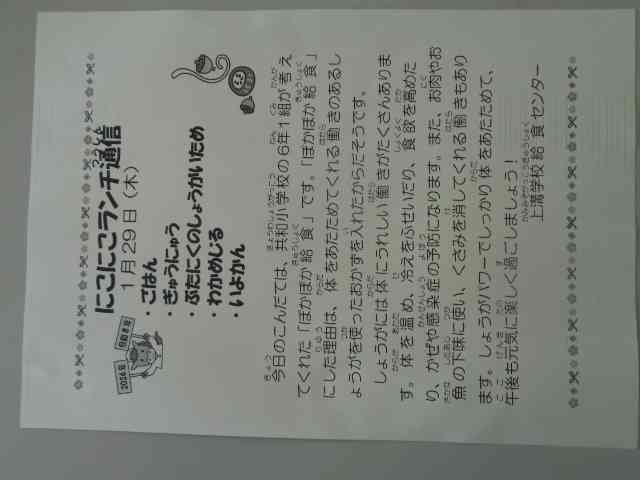 にこにこランチ通信
1月29日（木）
・ごはん
・ぎゅうにゅう
・ぶたにくのしょうがいため
・わかめじる
・いよかん
2026年
今日のこんだては、共和小学校の6年1組が考え
てくれた「ぽかぽか給食」です。「ぽかぽか給食」
にした理由は、体をあたためてくれる働きのあるし
ょうがを使ったおかずを入れたからだそうです。
しょうがには体にうれしい働きがたくさんありま
す。体を温め、冷えをふせいだり、食欲を高めた
り、かぜや感染症の予防になります。また、お肉やお
魚の下味に使い、くさみを消してくれる働きもあり
ます。しょうがパワーでしっかり体をあたためて、
午後も元気に楽しく過ごしましょう！
上溝学校給食センター